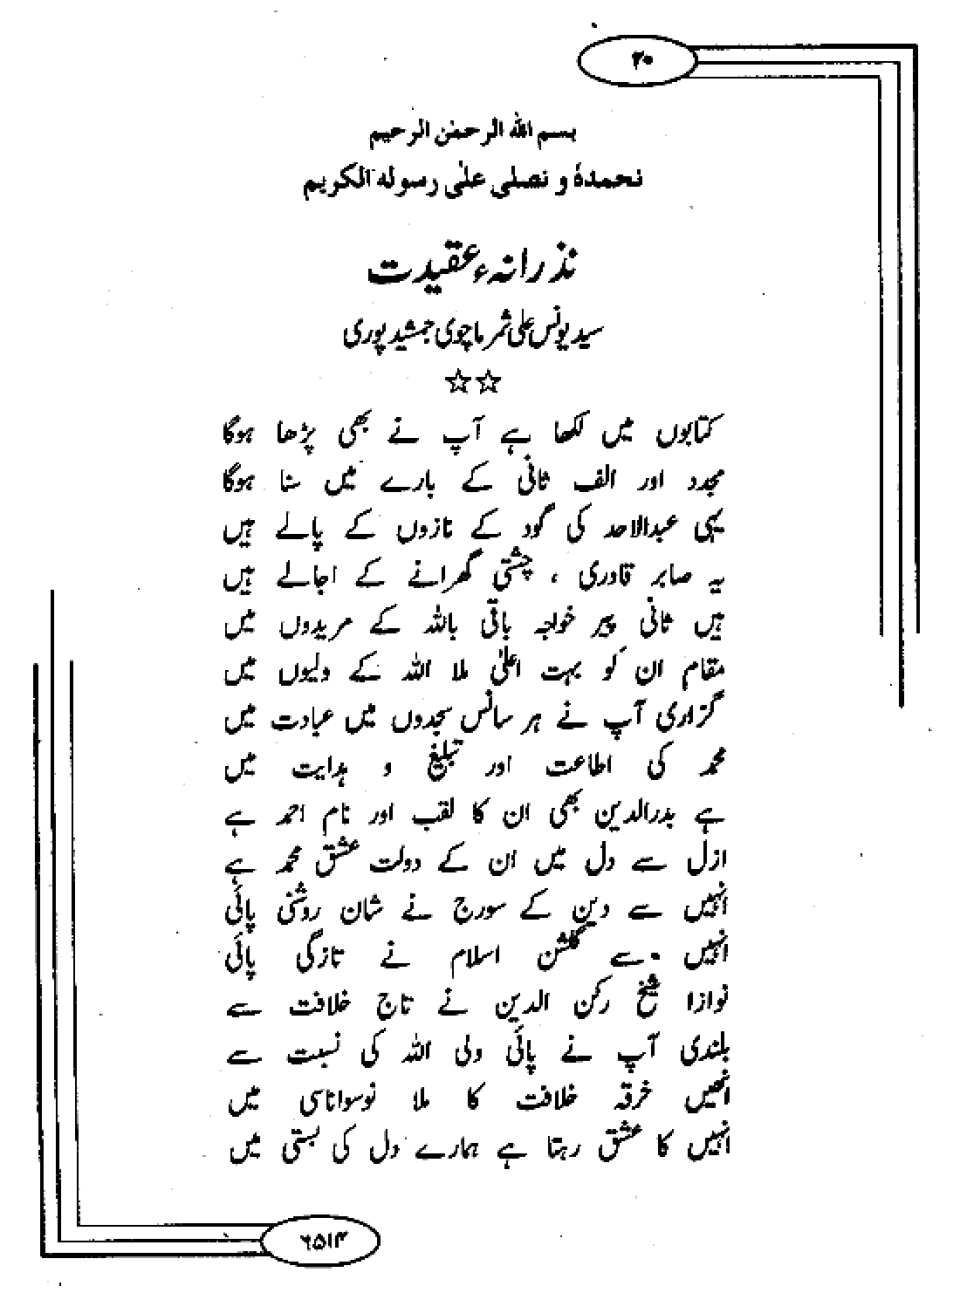 ۲۰
بسم الله الرحمٰن الرحیم
نحمدہٗ و نصلی علٰی رسوله الکریم
نذرانہء عقیدت
سید یونس علی ثمر ماچوی جمشید پوری
☆☆
کتابوں میں لکھا ہے آپ نے بھی پڑھا ہوگا
مجدد اور الف ثانی کے بارے میں سنا ہوگا
یہی عبدالاحد کی گود کے نازوں کے پالے ہیں
یہ صابر قادری ، چشتی گھرانے کے اجالے ہیں
ہیں ثانی پیر خواجہ باقی باللہ کے مریدوں میں
مقام ان کو بہت اعلیٰ ملا اللہ کے ولیوں میں
گزاری آپ نے ہر سانس سجدوں میں عبادت میں
محمد کی اطاعت اور تبلیغ و ہدایت میں
ہے بدرالدین بھی ان کا لقب اور نام احمد ہے
ازل سے دل میں ان کے دولت عشق محمد ہے
انہیں سے دین کے سورج نے شان روشنی پائی
انہیں سے گلشن اسلام نے تازگی پائی
نوازا شیخ رکن الدین نے تاج خلافت سے
بلندی آپ نے پائی ولی اللہ کی نسبت سے
انھیں خرقہ خلافت کا ملا نوسواناسی میں
انہیں کا عشق رہتا ہے ہمارے دل کی بستی میں